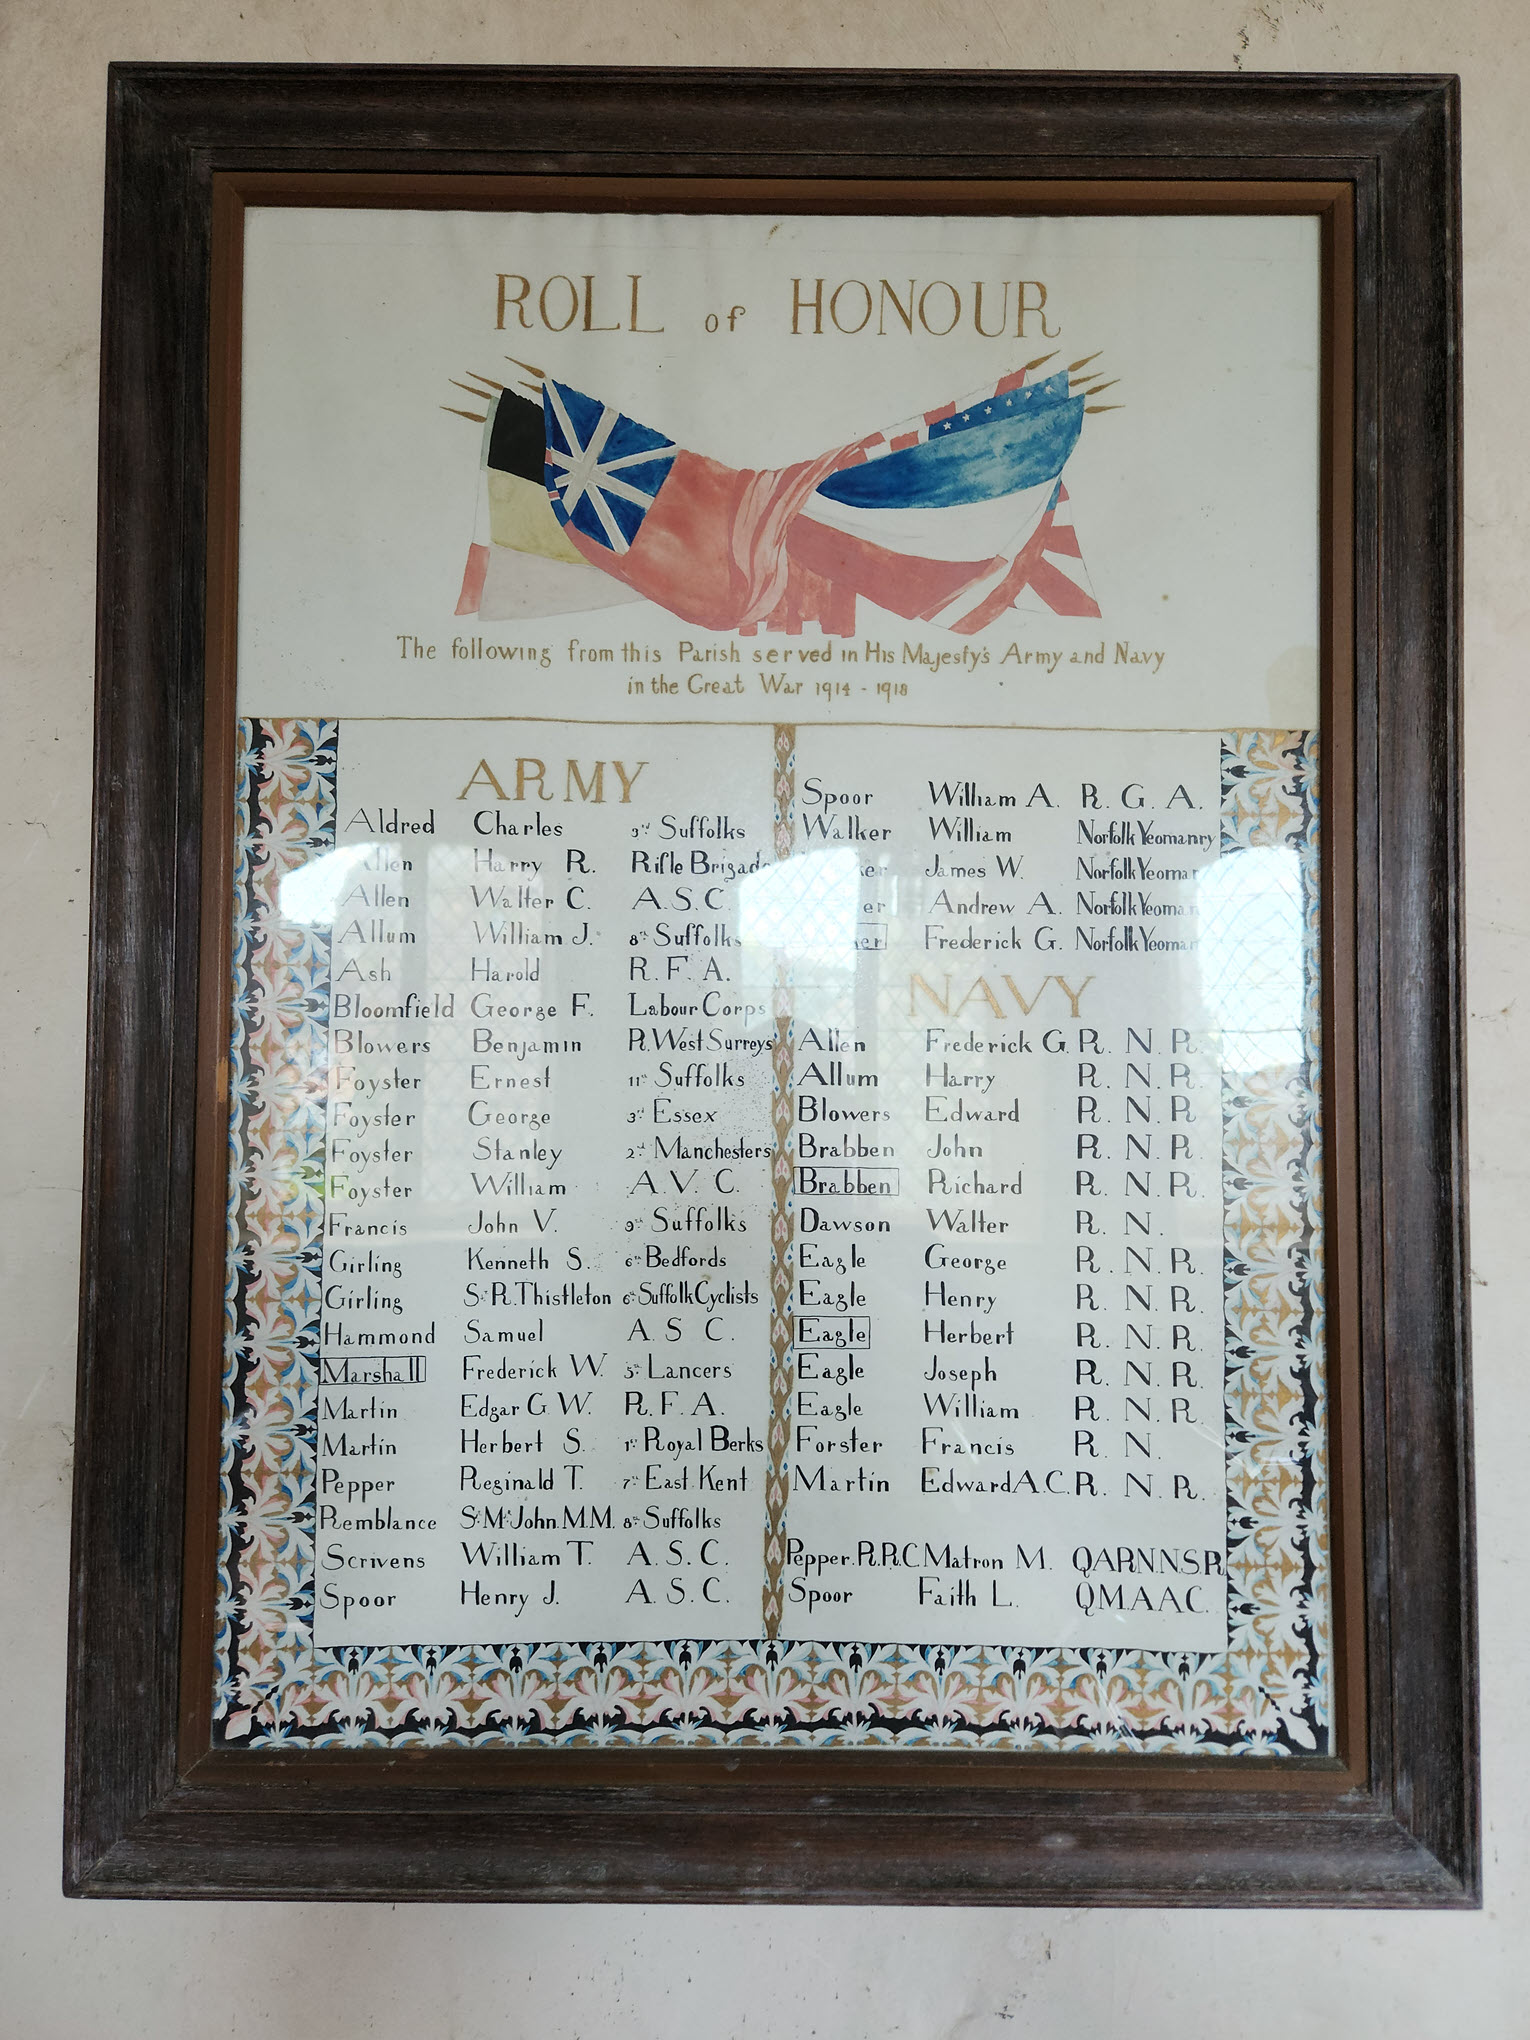 ROLL of HONOUR
The following from this Parish served in His Majesty's Army and Navy
in the Great War 1914 - 1918
ARMY
Aldred Charles 3rd Suffolks
Allen Harry R. Rifle Brigade
Allen Walter C. A.S.C.
Allum William J. 8th Suffolks
Ash Harold R.F.A.
Bloomfield George F. Labour Corps
Blowers Benjamin R.West Surreys
Foyster Ernest 11th Suffolks
Foyster George 3rd Essex
Foyster Stanley 2nd Manchesters
Foyster William A.V.C.
Francis John V. 9th Suffolks
Girling Kenneth S. 6th Bedfords
Girling St R.Thistleton 6th Suffolk Cyclists
Hammond Samuel A.S.C.
Marshall Frederick W. 5th Lancers
Martin Edgar G.W. R.F.A.
Martin Herbert S. 1st Royal Berks
Pepper Reginald T. 7th East Kent
Remblance St Mr John.M.M. 8th Suffolks
Scrivens William T. A.S.C.
Spoor Henry J. A.S.C.
Spoor William A. R.G.A.
Walker William Norfolk Yeomanry
James W. Norfolk
Andrew A. Norfolk
Frederick G. Norfolk
NAVY
Allen Frederick G. R.N.R.
Allum Harry R.N.R.
Blowers Edward R.N.R
Brabben John R.N.R.
Brabben Richard R.N.R.
Dawson Walter R.N.
Eagle George R.N.R.
Eagle Henry R.N.R.
Eagle Herbert R.N.R.
Eagle Joseph R.N.R.
Eagle William R.N.R.
Forster Francis R.N.
Martin Edward A.C. R.N.R.
Pepper.R.R.C. Matron M. QARNNS.R
Spoor Faith L. QMAAC.